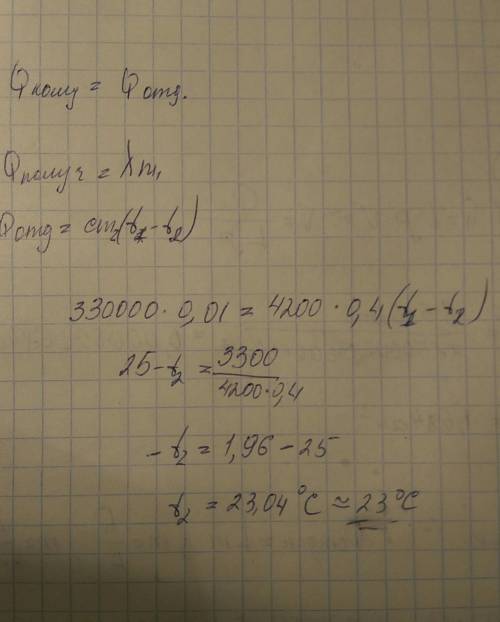 Qполу = Qотд.
Qполуч = λm₁
Qотд = cm₂(t₁ - t₂)
330000 · 0,01 = 4200 · 0,4 (t₁ - t₂)
25 - t₂ = 3300 / 4200 · 0,4
- t₂ = 1,96 - 25
t₂ = 23,04°C ≈ 23°C